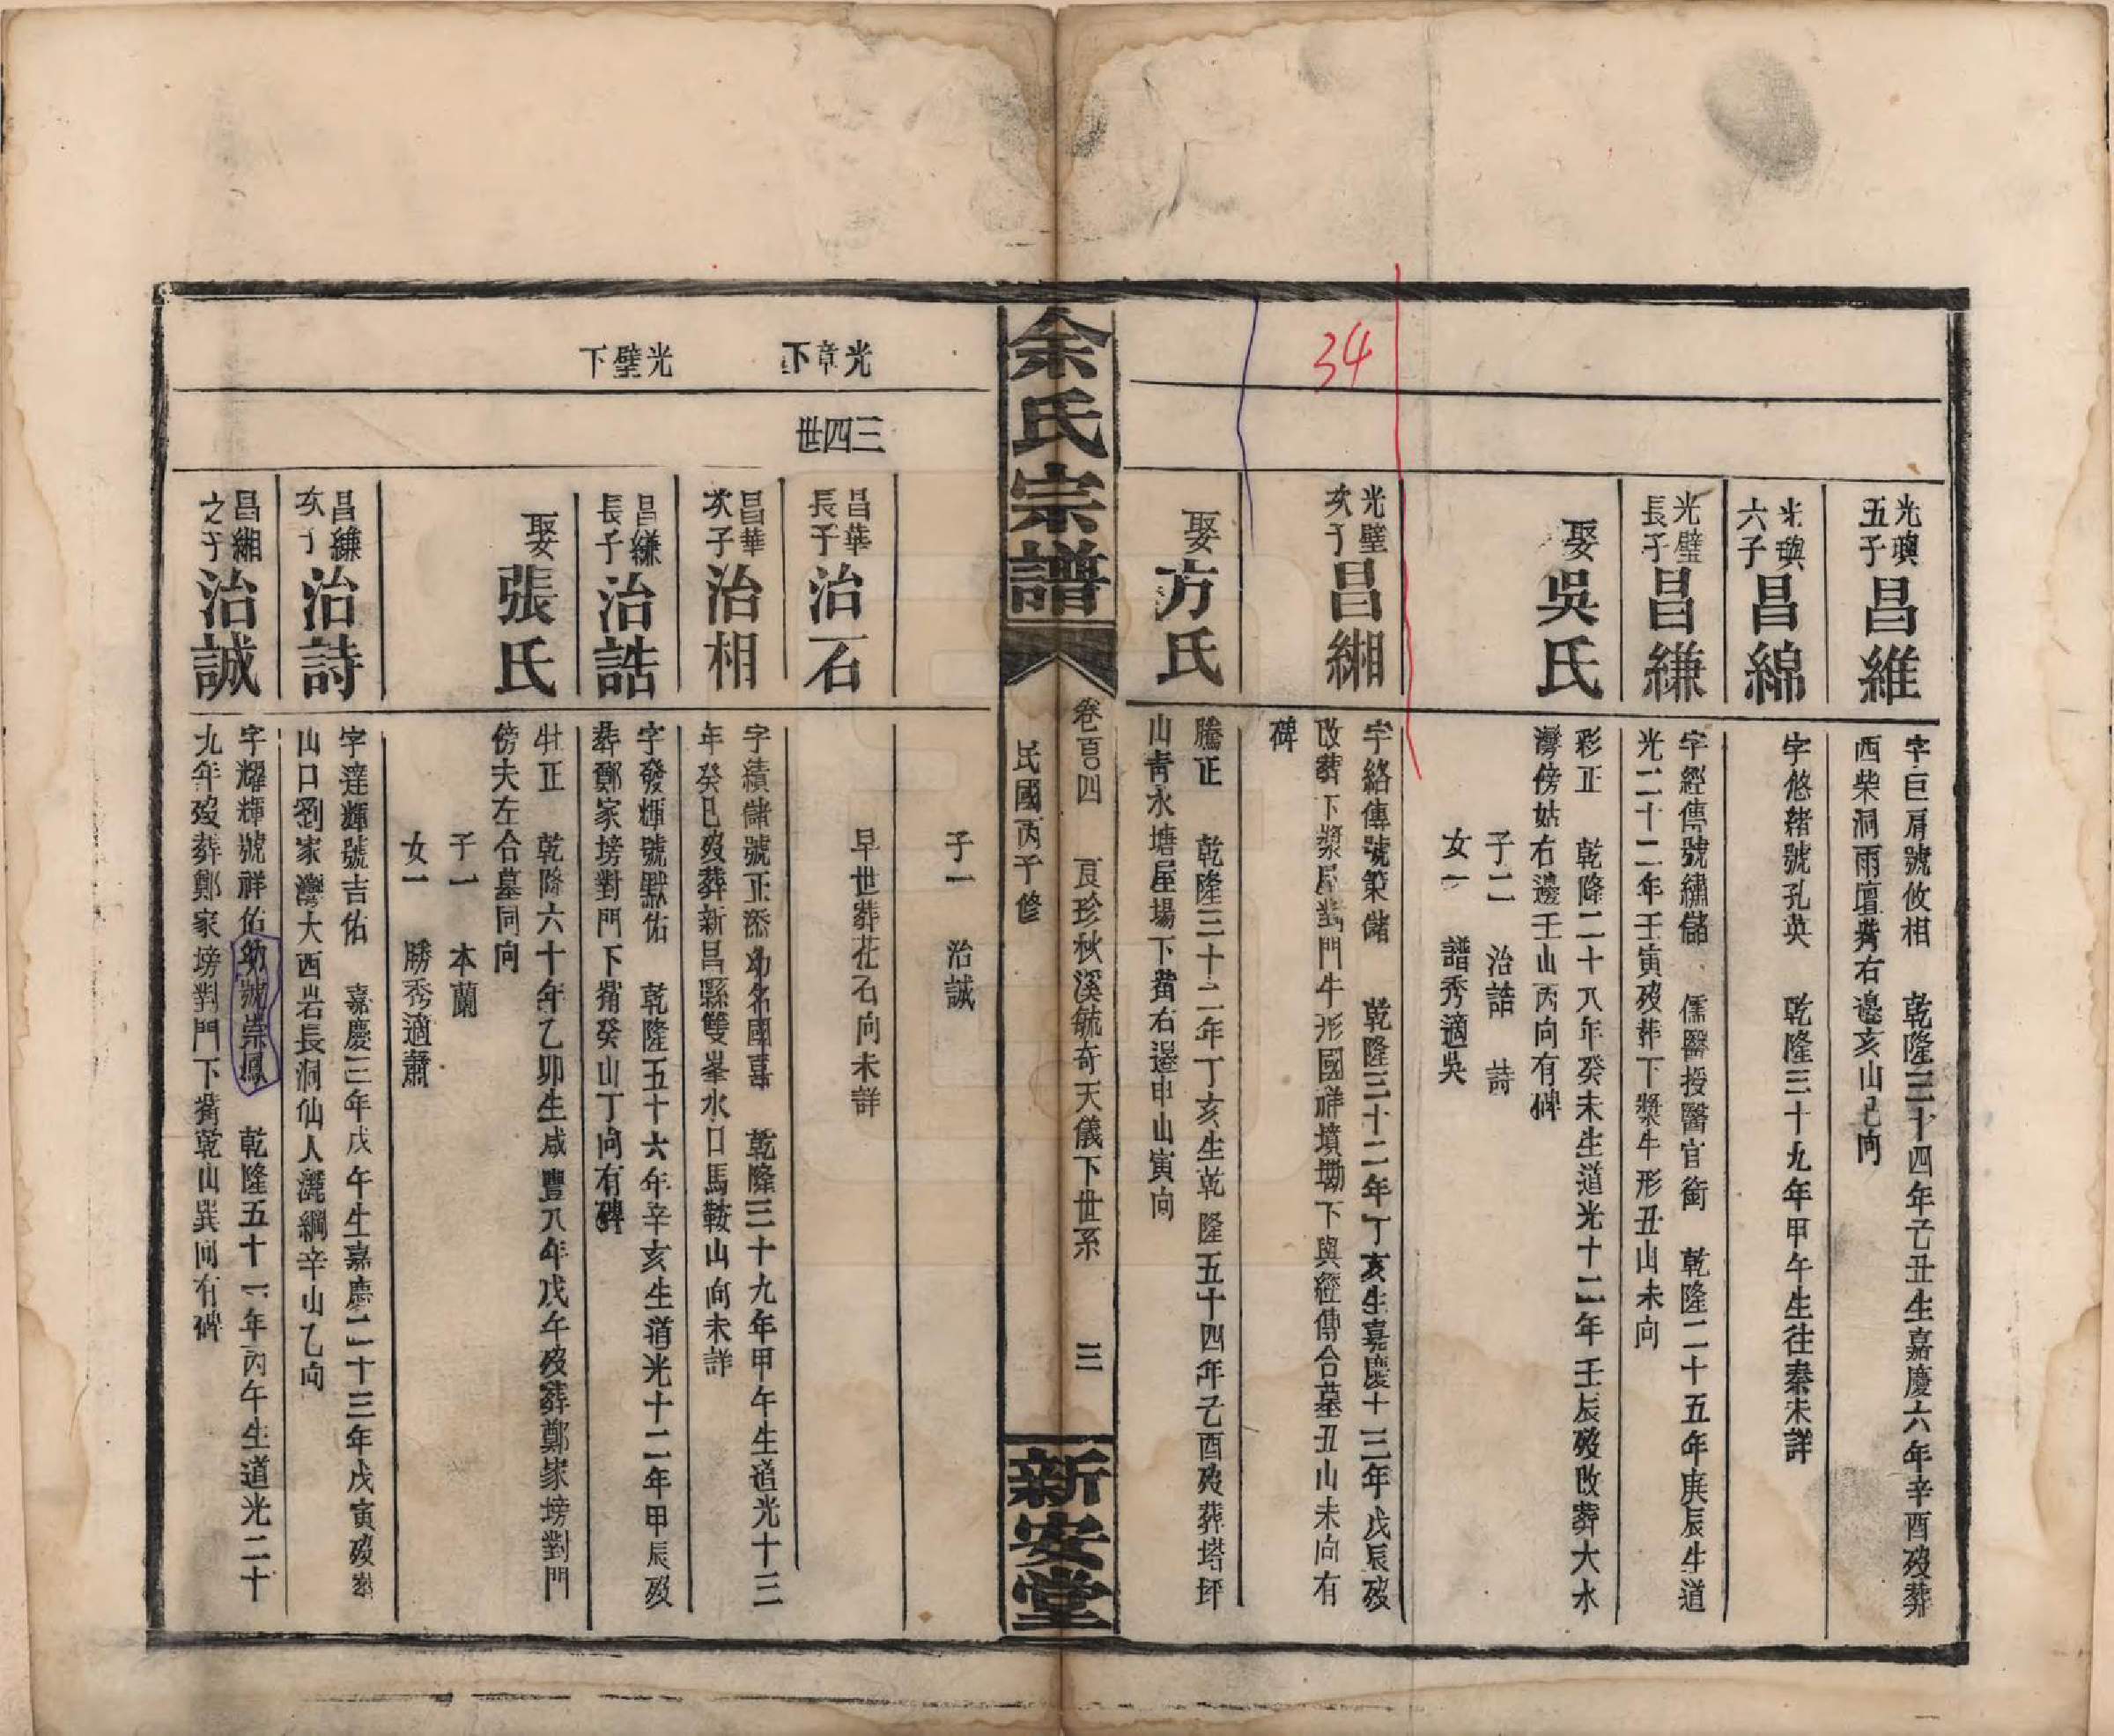 34
光璵
五子
昌維
字巨屑號攸相 乾隆三十四年乙丑生嘉慶六年辛酉歿葬
西柴洞雨壇背右邊亥山巳向
光璵
六子
昌綿
字悠緒號孔英 乾隆三十九年甲午生往秦未詳
光璧
長子
昌縑
字經傳號繡儲 儒醫授醫官銜 乾隆二十五年庚辰生道
光二十二年壬寅歿葬下漿牛形丑山未向
娶吳氏
彩正 乾隆二十八年癸未生道光十二年壬辰歿改葬大水
灣傍姑右邊壬山丙向有碑
子二 治誥 詩
女一 譜秀適吳
光璧
次子
昌緗
字絡傳號策儲 乾隆三十二年丁亥生嘉慶十三年戊辰歿
改葬下漿屋對門牛形國祥墳墈下與經傳合墓丑山未向有
碑
娶方氏
騰正 乾隆三十二年丁亥生乾隆五十四年乙酉歿葬塔坪
山青水塘屋場下背右邊申山寅向
余氏宗譜
卷百四 良珍秋溪毓奇天儀下世系 三
民國丙子修
新安堂
子一 治誠
光章下
三四世
昌華
長子
治石
早世葬花石向未詳
昌華
次子
治相
字績儲號正添幼名國喜 乾隆三十九年甲午生道光十三
年癸巳歿葬新昌縣雙峯水口馬鞍山向未詳
光璧下
昌縑
長子
治誥
字發輝號默佑 乾隆五十六年辛亥生道光十二年甲辰歿
葬鄭家塝對門下背癸山丁向有碑
娶張氏
牡正 乾隆六十年乙卯生咸豐八年戊午歿葬鄭家塝對門
傍夫左合墓同向
子一 本蘭
女一 勝秀適蕭
昌縑
次子
治詩
字達輝號吉佑 嘉慶三年戊午生嘉慶二十三年戊寅歿葬
山口劉家灣大西岩長洞仙人灑網辛山乙向
昌緗
之子
治誠
字耀輝號祥佑幼號崇鳳 乾隆五十一年丙午生道光二十
九年歿葬鄭家塝對門下背乾山巽向有碑